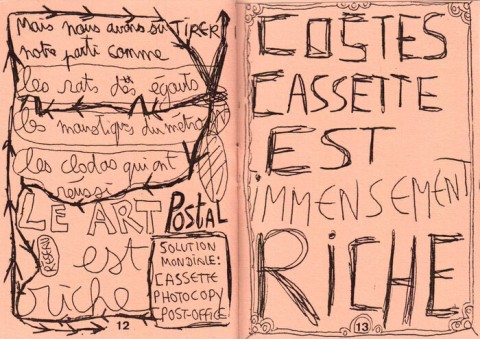 Mais nous avons su TIRER
notre parti comme
les rats des égouts
les manotiques du métro
les clodos qui ont
reussi
LE ART POSTAL
RÉSEAU est
riche
SOLUTION
MONDIALE:
CASSETTE
PHOTOCOPY
POST-OFFICE
12
COSTES
CASSETTE
EST
IMMENSEMENT
RICHE
13